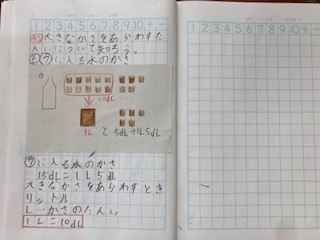 1 2 3 4 5 6 7 8 9 10 + -
1 2 3 4 5 6 7 8 9 10 + -
大きなかさをあらわすた
んいについて知ろう。
に入る水のかさ
10dL
1L
と5dL→1L5dL
に入る水のかさ
15dL=1L5dL
大きなかさをあらわすとき
リットル
L…かさのたんい
1L=10dL